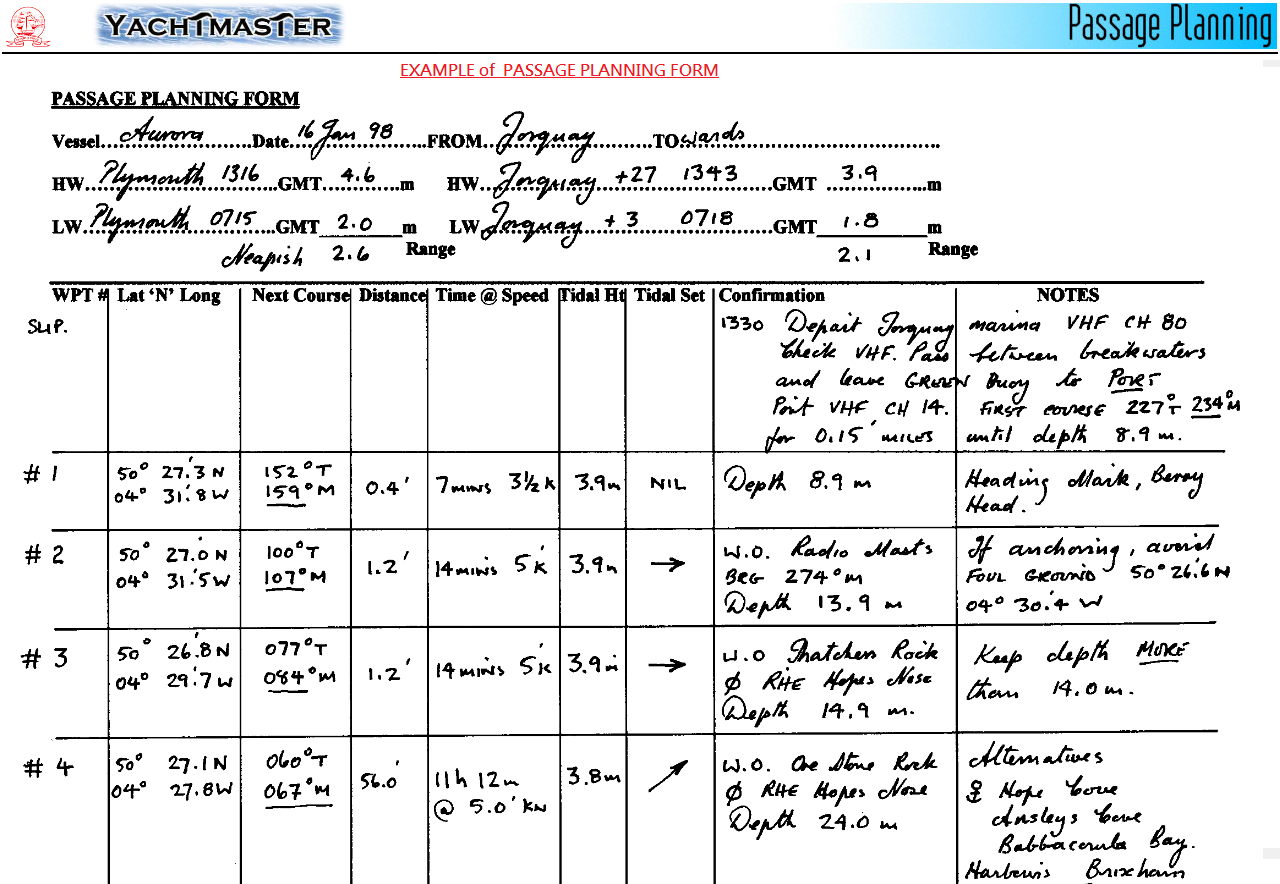 YACHTMASTER
Passage Planning
EXAMPLE of PASSAGE PLANNING FORM
PASSAGE PLANNING FORM
Vessel...Aurora...Date...16 Jan 98...FROM...Torquay...TO wards...
HW...Plymouth 1316...GMT...4.6...m HW...Torquay +27 1343...GMT...3.9...m
LW...Plymouth 0715...GMT 2.0 m LW Torquay...+3 0718...GMT 1.8 m
Neapish 2.6 Range 2.1 Range
WPT # Lat ‘N’ Long Next Course Distance Time @ Speed Tidal Ht Tidal Set Confirmation NOTES
SLIP. 1330 Depart Torquay marina VHF CH 80
Check VHF. Pass between breakwaters
and leave GREEN Buoy to PORT
Port VHF CH 14. FIRST COURSE 227°T 234°M
for 0.15' MILES until depth 8.9 m.
# 1 50° 27.'3 N 152°T 0.4' 7 mins 3½ K 3.9m NIL Depth 8.9 m Heading Mark, Berry
04° 31.'8 W 159°M Head.
# 2 50° 27.'0 N 100°T 1.2' 14 mins 5'K 3.9m → W.O. Radio Masts If anchoring, avoid
04° 31.'5 W 107°M BRG 274°m FOUL GROUND 50° 26.'6 N
Depth 13.9 m 04° 30.'4 W
# 3 50° 26.'8 N 077°T 1.2' 14 mins 5'K 3.9m → W.O Thatchers Rock Keep depth MORE
04° 29.'7 W 084°M ϕ RHE Hopes Nose than 14.0 m.
Depth 14.9 m.
# 4 50° 27.'1 N 060°T 56.0' 11h 12m 3.8m ↗ W.O. Ore Stone Rock Alternatives
04° 27.'8 W 067°M @ 5.0' KN ϕ RHE Hopes Nose ⚓ Hope Cove
Depth 24.0 m Ansleys Cove
Babbacombe Bay.
Harbours Brixham